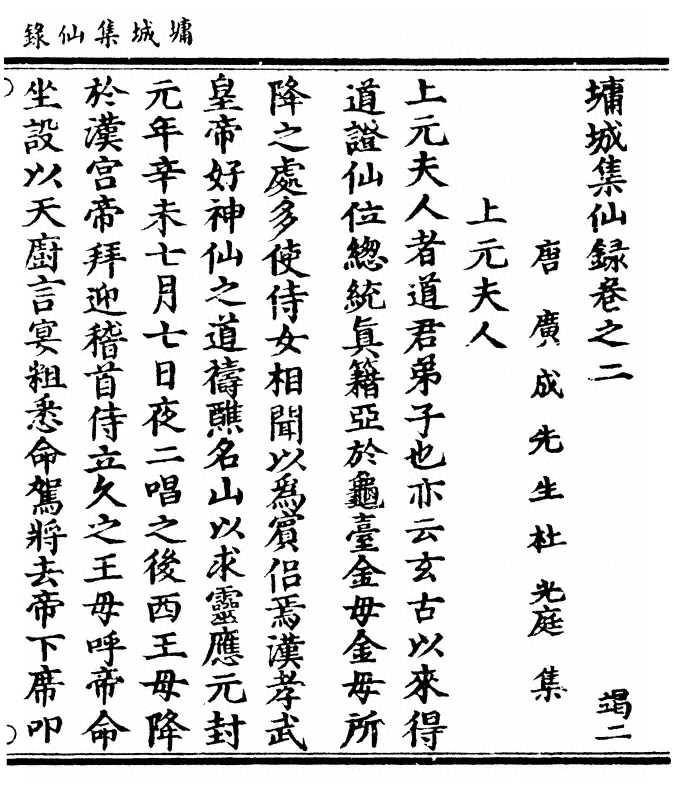 墉城集仙錄
墉城集仙録卷之二
竭二
唐廣成先生杜光庭集
上元夫人
上元夫人者道君弟子也亦云玄古以來得
道證仙位總統真籍亞於龜臺金母金母所
降之處多使侍女相聞以爲賓侣焉漢孝武
皇帝好神仙之道禱醮名山以求靈應元封
元年辛未七月七日夜二唱之後西王母降
於漢宫帝拜迎稽首侍立久之王母呼帝命
坐設以天廚言宴粗悉命駕將去帝下席叩